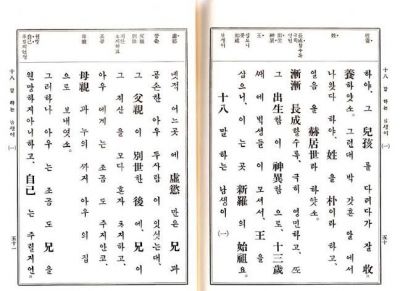 收養
姓
王
하야, 그 兒孩를 다려다가 잘 收
養하얏소. 그런대 박 갓흔 알에서
나왓다 하야, 姓을 朴이라 하고,
일음을 赫居世라 하얏소.
漸漸 長成할수록, 극히 영민하고, 또
그 出生이 神異함으로, 十三歲
때에 백성들이 모서서, 王을
삼으니, 이는 곳 新羅의 始祖요.
十八 말 하는 남생이 (一)
十八 말 하는 남생이 (一)
五十
虛慾
조곰
母親
넷적 어느곳에 虛慾만은 兄과
공손한 아우 두사람이 잇섯는대,
그 父親이 別世한 後에, 兄이
그 재산을 모다 혼자 차지하고,
아우에게는 조곰도 주지안코,
母親과 누의까지 아우의 집
으로 보내엿소.
그러하나 아우는 조곰도 兄을
원망하지아니하고, 自己는 주릴지언
十八 말 하는 남생이 (一)
五十一